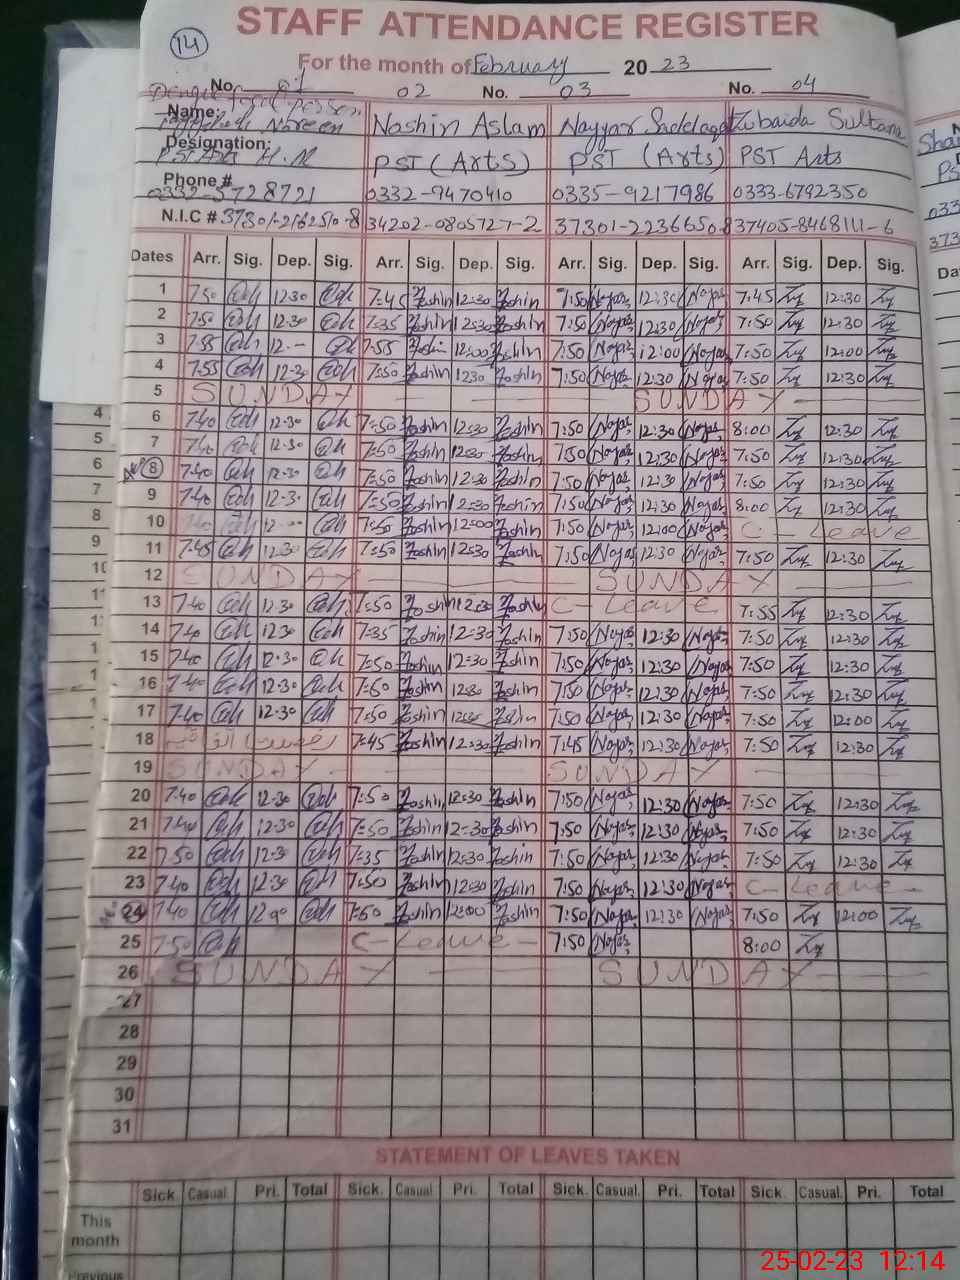 14
STAFF ATTENDANCE REGISTER
For the month of February 20 23
No. 01 02 No. 03 No. 04
Name: Noreen Noshin Aslam Nayyar Zubaida Sultana
Designation: PST (Arts) PST (Arts) PST Arts
Phone # 0332-5728721 0332-9470410 0335-9217986 0333-6792350
N.I.C # 37301-2162510-8 34202-0805727-2 37301-2236650-8 37405-8468111-6
Dates Arr. Sig. Dep. Sig. Arr. Sig. Dep. Sig. Arr. Sig. Dep. Sig. Arr. Sig. Dep. Sig.
1 7:50 12:30 7:45 Noshin 12:30 Noshin 7:50 Nayar 12:30 Nayar 7:45 12:30
2 7:50 12:30 7:35 Noshin 12:30 Noshin 7:50 Nayar 12:30 Nayar 7:50 12:30
3 7:55 12:-- 7:55 Noshin 12:00 Noshin 7:50 Nayar 12:00 Nayar 7:50 12:00
4 7:55 12:30 7:50 Noshin 12:30 Noshin 7:50 Nayar 12:30 Nayar 7:50 12:30
5 SUNDAY SUNDAY
6 7:40 12:30 7:50 Noshin 12:30 Noshin 7:50 Nayar 12:30 Nayar 8:00 12:30
7 7:40 12:30 7:50 Noshin 12:30 Noshin 7:50 Nayar 12:30 Nayar 7:50 12:30
8 7:40 12:30 7:50 Noshin 12:30 Noshin 7:50 Nayar 12:30 Nayar 7:50 12:30
9 7:40 12:30 7:50 Noshin 12:30 Noshin 7:50 Nayar 12:30 Nayar 8:00 12:30
10 7:40 12:-- 7:50 Noshin 12:00 Noshin 7:50 Nayar 12:00 Nayar C-Leave
11 7:45 12:30 7:50 Noshin 12:30 Noshin 7:50 Nayar 12:30 Nayar 7:50 12:30
12 SUNDAY SUNDAY
13 7:40 12:30 7:50 Noshin 12:30 Noshin C-Leave 7:55 12:30
14 7:40 12:30 7:35 Noshin 12:30 Noshin 7:50 Nayar 12:30 Nayar 7:50 12:30
15 7:40 12:30 7:50 Noshin 12:30 Noshin 7:50 Nayar 12:30 Nayar 7:50 12:30
16 7:40 12:30 7:50 Noshin 12:30 Noshin 7:50 Nayar 12:30 Nayar 7:50 12:30
17 7:40 12:30 7:50 Noshin 12:30 Noshin 7:50 Nayar 12:30 Nayar 7:50 12:00
18 رخصت اتفاقیہ 7:45 Noshin 12:30 Noshin 7:45 Nayar 12:30 Nayar 7:50 12:30
19 SUNDAY SUNDAY
20 7:40 12:30 7:50 Noshin 12:30 Noshin 7:50 Nayar 12:30 Nayar 7:50 12:30
21 7:40 12:30 7:50 Noshin 12:30 Noshin 7:50 Nayar 12:30 Nayar 7:50 12:30
22 7:50 12:30 7:35 Noshin 12:30 Noshin 7:50 Nayar 12:30 Nayar 7:50 12:30
23 7:40 12:30 7:50 Noshin 12:30 Noshin 7:50 Nayar 12:30 Nayar C-Leave
24 7:40 12:00 7:50 Noshin 12:00 Noshin 7:50 Nayar 12:30 Nayar 7:50 12:00
25 7:50 C-Leave 7:50 Nayar 8:00
26 SUNDAY SUNDAY
27
28
29
30
31
STATEMENT OF LEAVES TAKEN
Sick. Casual. Pri. Total Sick. Casual Pri. Total Sick. Casual. Pri. Total Sick. Casual. Pri. Total
This month
Previous
25-02-23 12:14